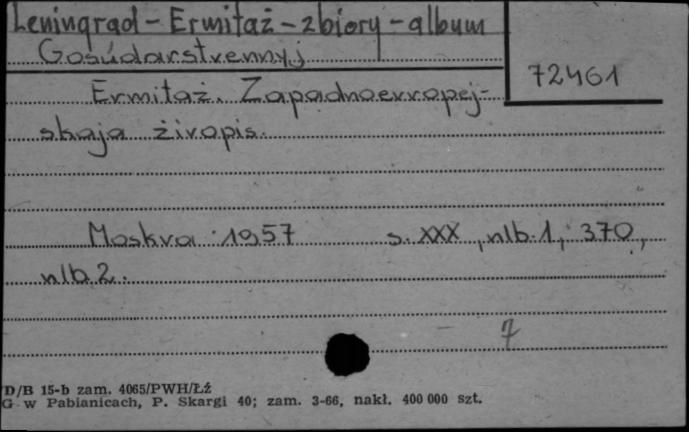 Leningrad - Ermitaż - zbiory - album
Gosúdarstvennyj
72461
Ermitaż. Zapadnoevropej-
skaja živopis.
Moskva 1957 s. XXX, nlb. 1, 370,
nlb. 2.
7
D/B 15-b zam. 4065/PWH/Łź
G w Pabianicach, P. Skargi 40; zam. 3-66, nakł. 400 000 szt.